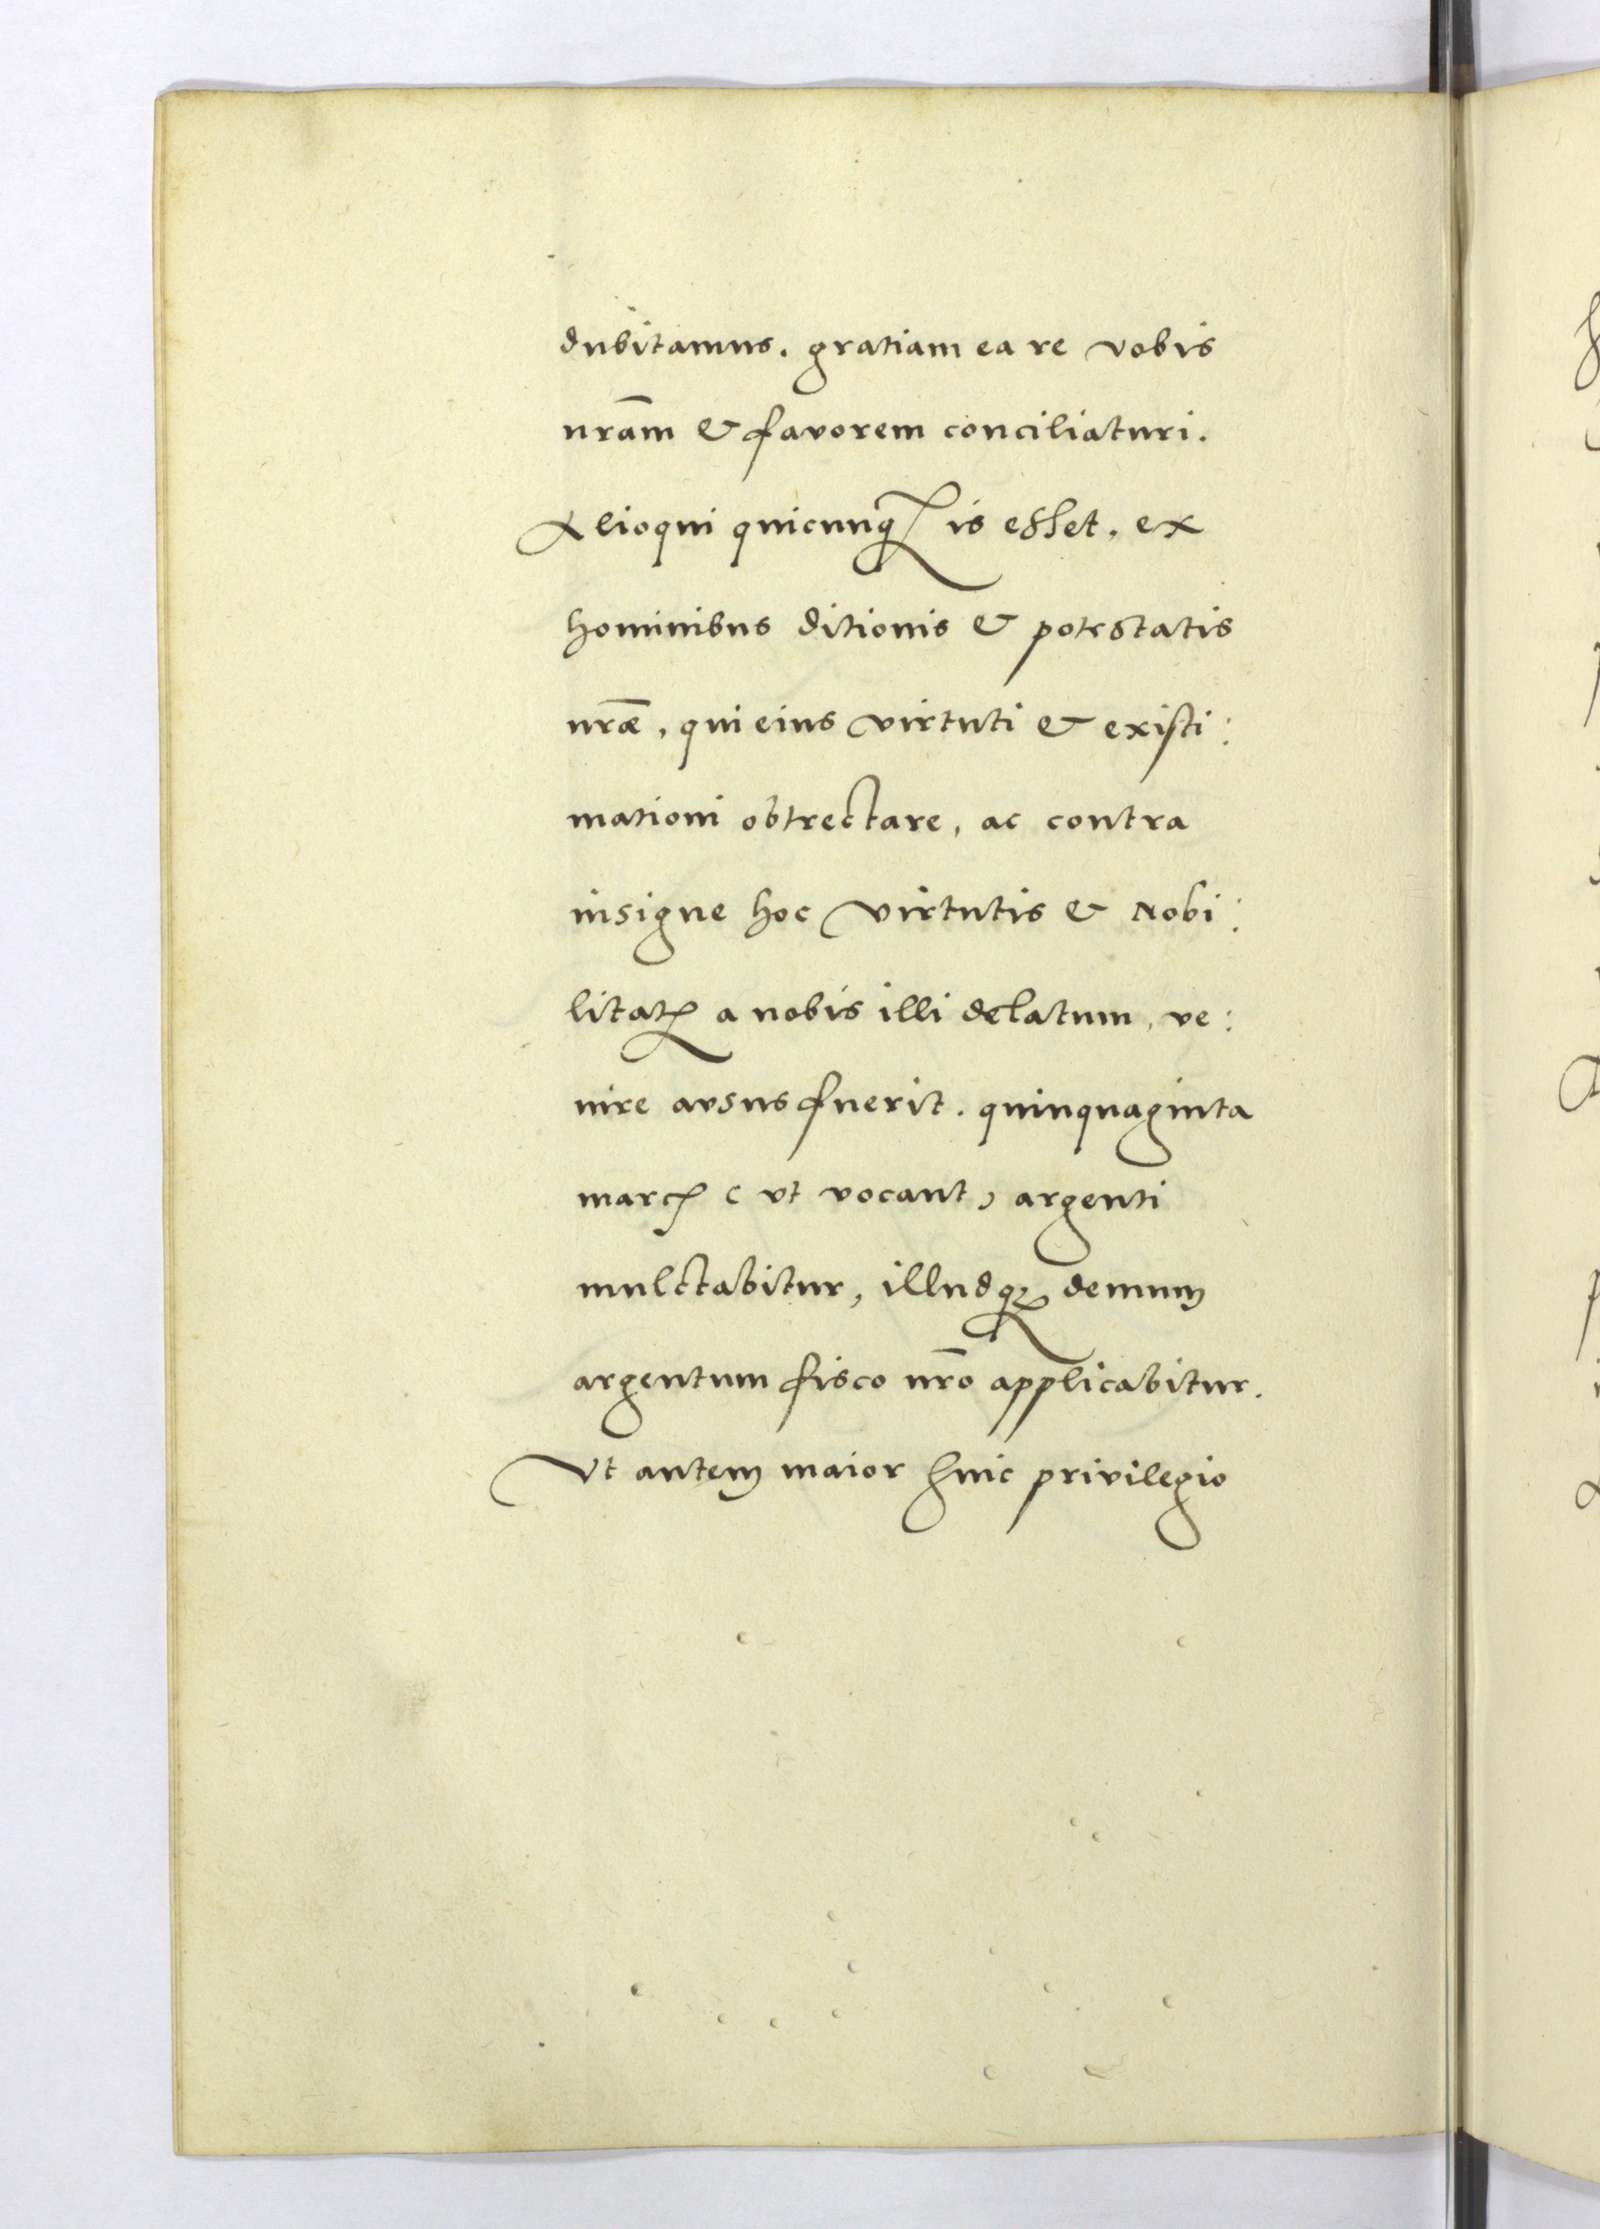 dubitamus. gratiam ea re vobis
nr̄am & favorem conciliaturi.
Alioqui quicunqꝫ is esset, ex
hominibus ditionis & potestatis
nr̄æ, qui eius virtuti & existi:
mationi obtrectare, ac contra
insigne hoc virtutis & Nobi:
litatꝭ a nobis illi delatum, ve:
nire avsus fuerit. quinquaginta
marcꝭ (vt vocant) argenti
mulctabitur, illudqꝫ demum
argentum fisco nr̄o applicabitur.
Vt autem maior huic privilegio